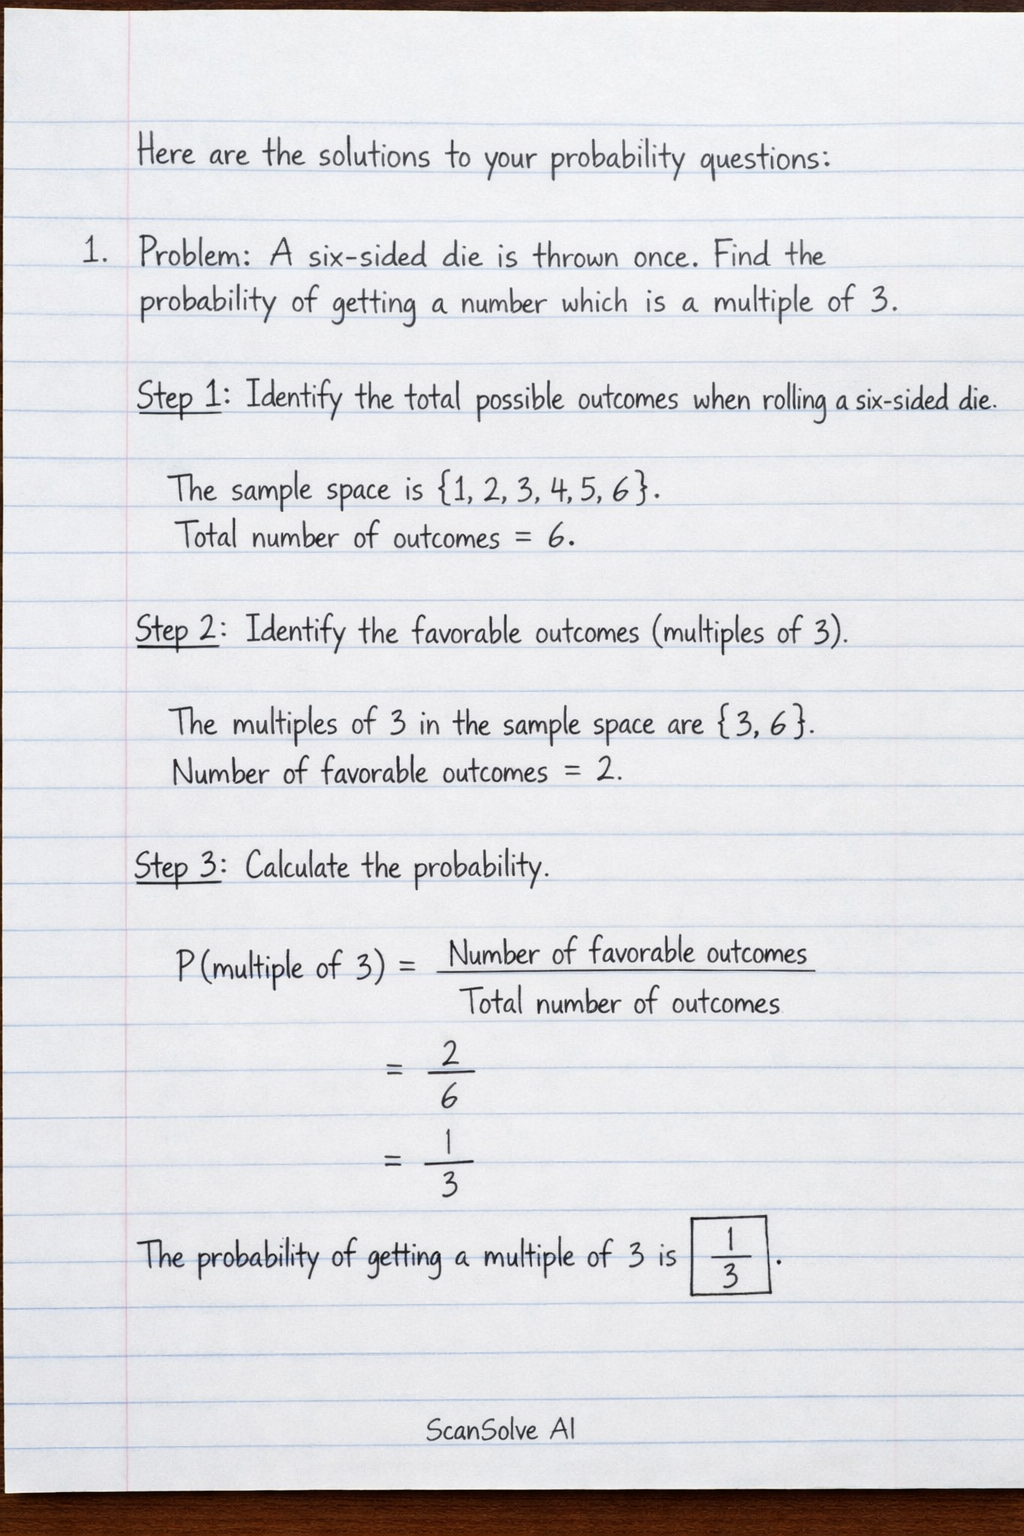 Here are the solutions to your probability questions:
1. Problem: A six-sided die is thrown once. Find the
probability of getting a number which is a multiple of 3.
Step 1: Identify the total possible outcomes when rolling a six-sided die.
The sample space is {1, 2, 3, 4, 5, 6}.
Total number of outcomes = 6.
Step 2: Identify the favorable outcomes (multiples of 3).
The multiples of 3 in the sample space are {3, 6}.
Number of favorable outcomes = 2.
Step 3: Calculate the probability.
P(multiple of 3) = Number of favorable outcomes
Total number of outcomes
= 2
6
= 1
3
The probability of getting a multiple of 3 is 1/3.
ScanSolve AI